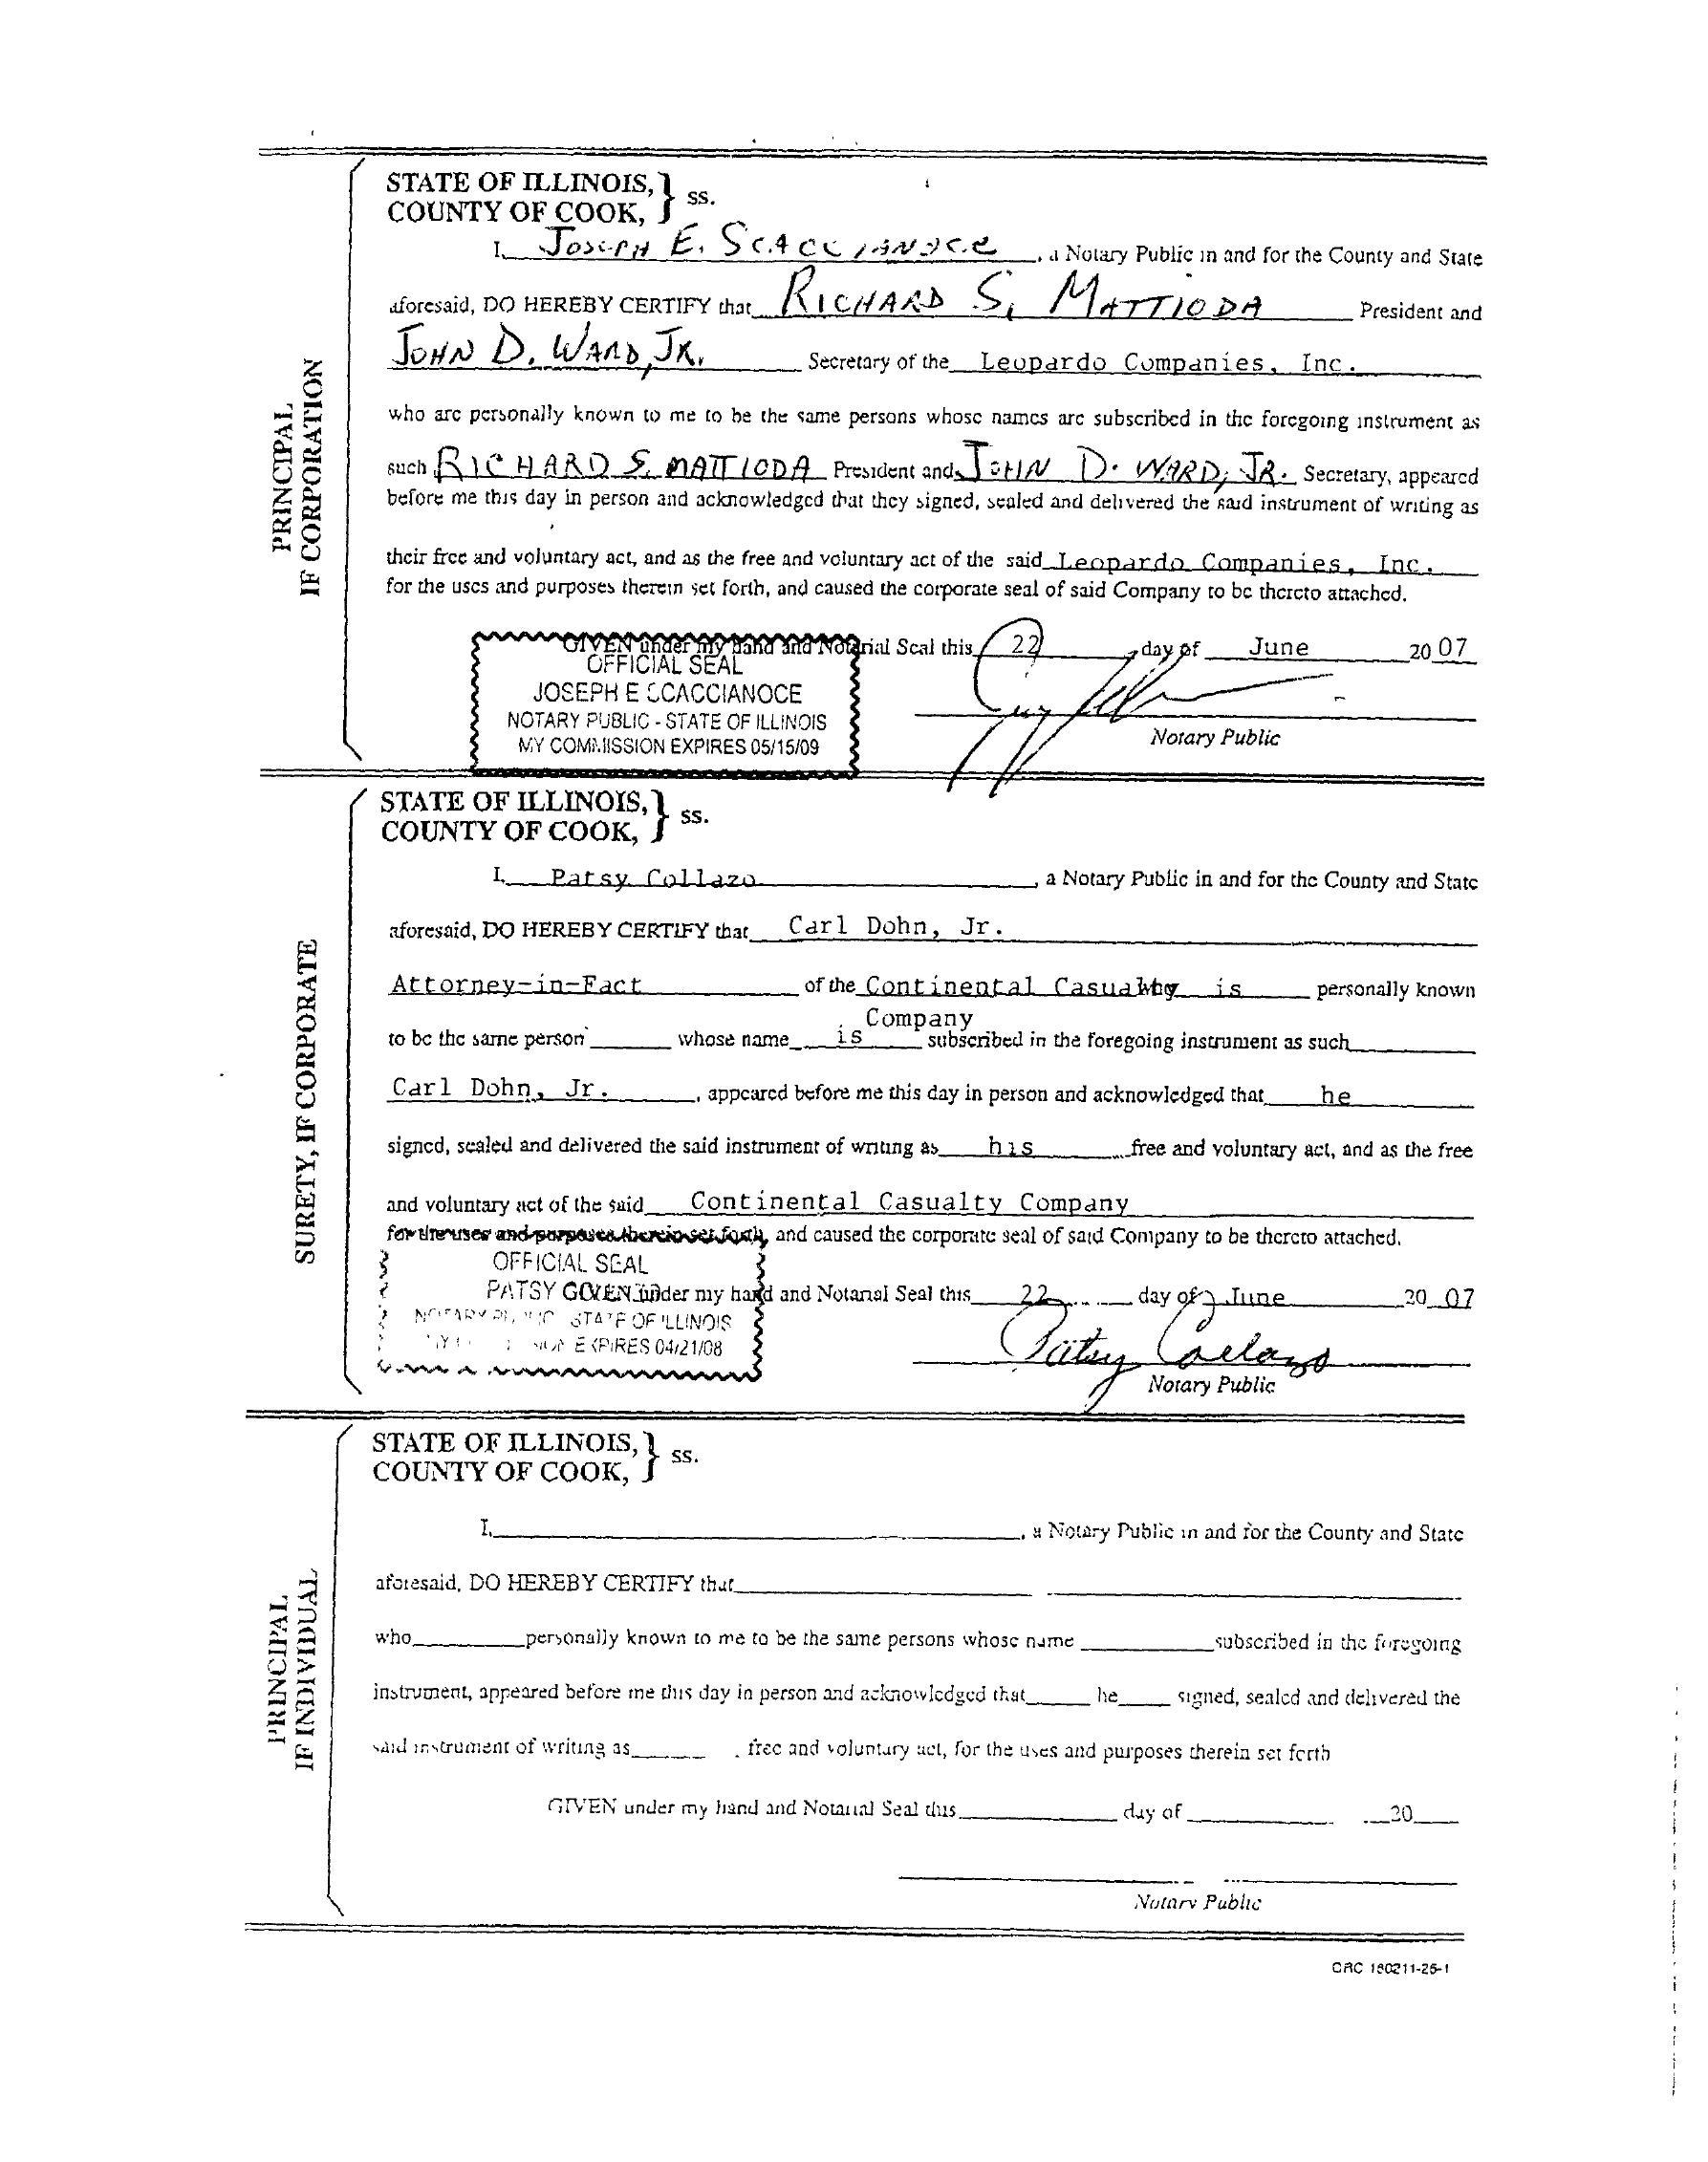 STATE OF ILLINOIS,
COUNTY OF COOK, } ss.
I, JOSEPH E. SCACCIANOCE, a Notary Public in and for the County and State
aforesaid, DO HEREBY CERTIFY that RICHARD S. MATTIODA President and
JOHN D. WARD, JR. Secretary of the Leopardo Companies, Inc.
who are personally known to me to be the same persons whose names are subscribed in the foregoing instrument as
such RICHARD S. MATTIODA President and JOHN D. WARD, JR. Secretary, appeared
before me this day in person and acknowledged that they signed, sealed and delivered the said instrument of writing as
their free and voluntary act, and as the free and voluntary act of the said Leopardo Companies, Inc.
for the uses and purposes therein set forth, and caused the corporate seal of said Company to be thereto attached.
GIVEN under my hand and Notarial Seal this 22 day of June 2007
OFFICIAL SEAL
JOSEPH E SCACCIANOCE
NOTARY PUBLIC - STATE OF ILLINOIS
MY COMMISSION EXPIRES 05/15/09
Notary Public
PRINCIPAL
IF CORPORATION
STATE OF ILLINOIS,
COUNTY OF COOK, } ss.
I, Patsy Collazo, a Notary Public in and for the County and State
aforesaid, DO HEREBY CERTIFY that Carl Dohn, Jr.
Attorney-in-Fact of the Continental Casualty is personally known
Company
to be the same person whose name is subscribed in the foregoing instrument as such
Carl Dohn, Jr., appeared before me this day in person and acknowledged that he
signed, sealed and delivered the said instrument of writing as his free and voluntary act, and as the free
and voluntary act of the said Continental Casualty Company
for the uses and purposes therein set forth, and caused the corporate seal of said Company to be thereto attached.
OFFICIAL SEAL
PATSY GIVEN under my hand and Notarial Seal this 22 day of June 20 07
NOTARY PUBLIC STATE OF ILLINOIS
EXPIRES 04/21/08
Patsy Collazo
Notary Public
SURETY, IF CORPORATE
STATE OF ILLINOIS,
COUNTY OF COOK, } ss.
I, , a Notary Public in and for the County and State
aforesaid, DO HEREBY CERTIFY that
who personally known to me to be the same persons whose name subscribed in the foregoing
instrument, appeared before me this day in person and acknowledged that he signed, sealed and delivered the
said instrument of writing as free and voluntary act, for the uses and purposes therein set forth
GIVEN under my hand and Notarial Seal this day of 20
Notary Public
PRINCIPAL
IF INDIVIDUAL
CRC 180211-25-1